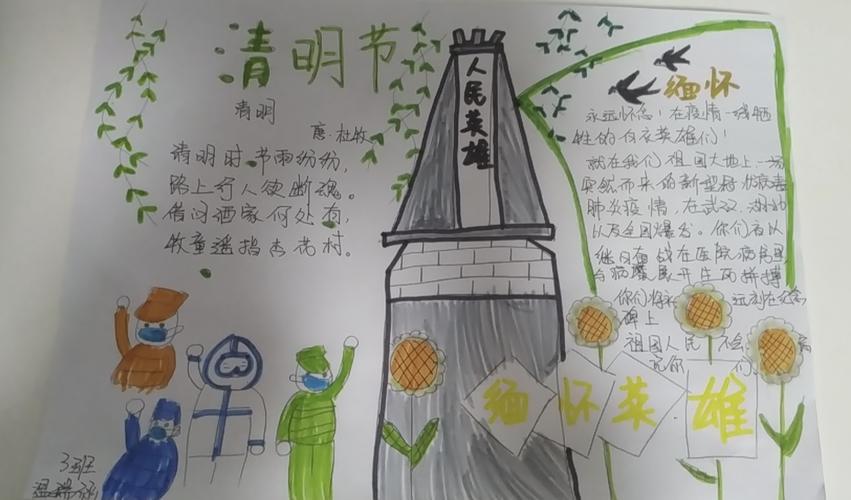 清明节
清明
唐·杜牧
清明时节雨纷纷,
路上行人欲断魂。
借问酒家何处有,
牧童遥指杏花村。
人民英雄
缅怀
永远怀念!在疫情一线牺
牲的白衣英雄们!
就在我们祖国大地上一场
突然而来的新型冠状病毒
肺炎疫情,在武汉、湖北
以及全国爆发。你们夜以
继日奋战在医院病房里
与病魔展开生死拼搏
你们将 远刻在纪念
碑上
祖国人民 不会
你 们
缅怀英雄
3班